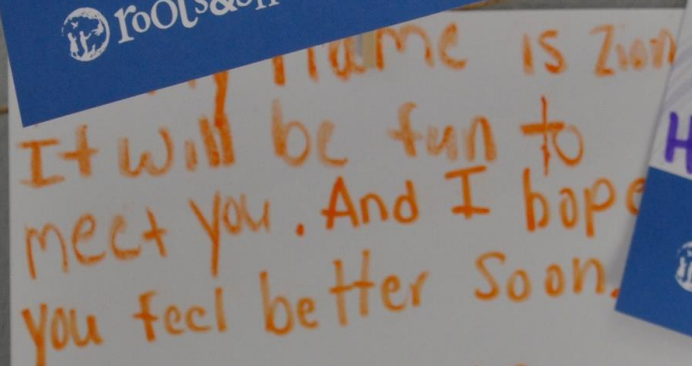 roots&
My name is Zion
It will be fun to
meet you. And I hope
you feel better soon.
H